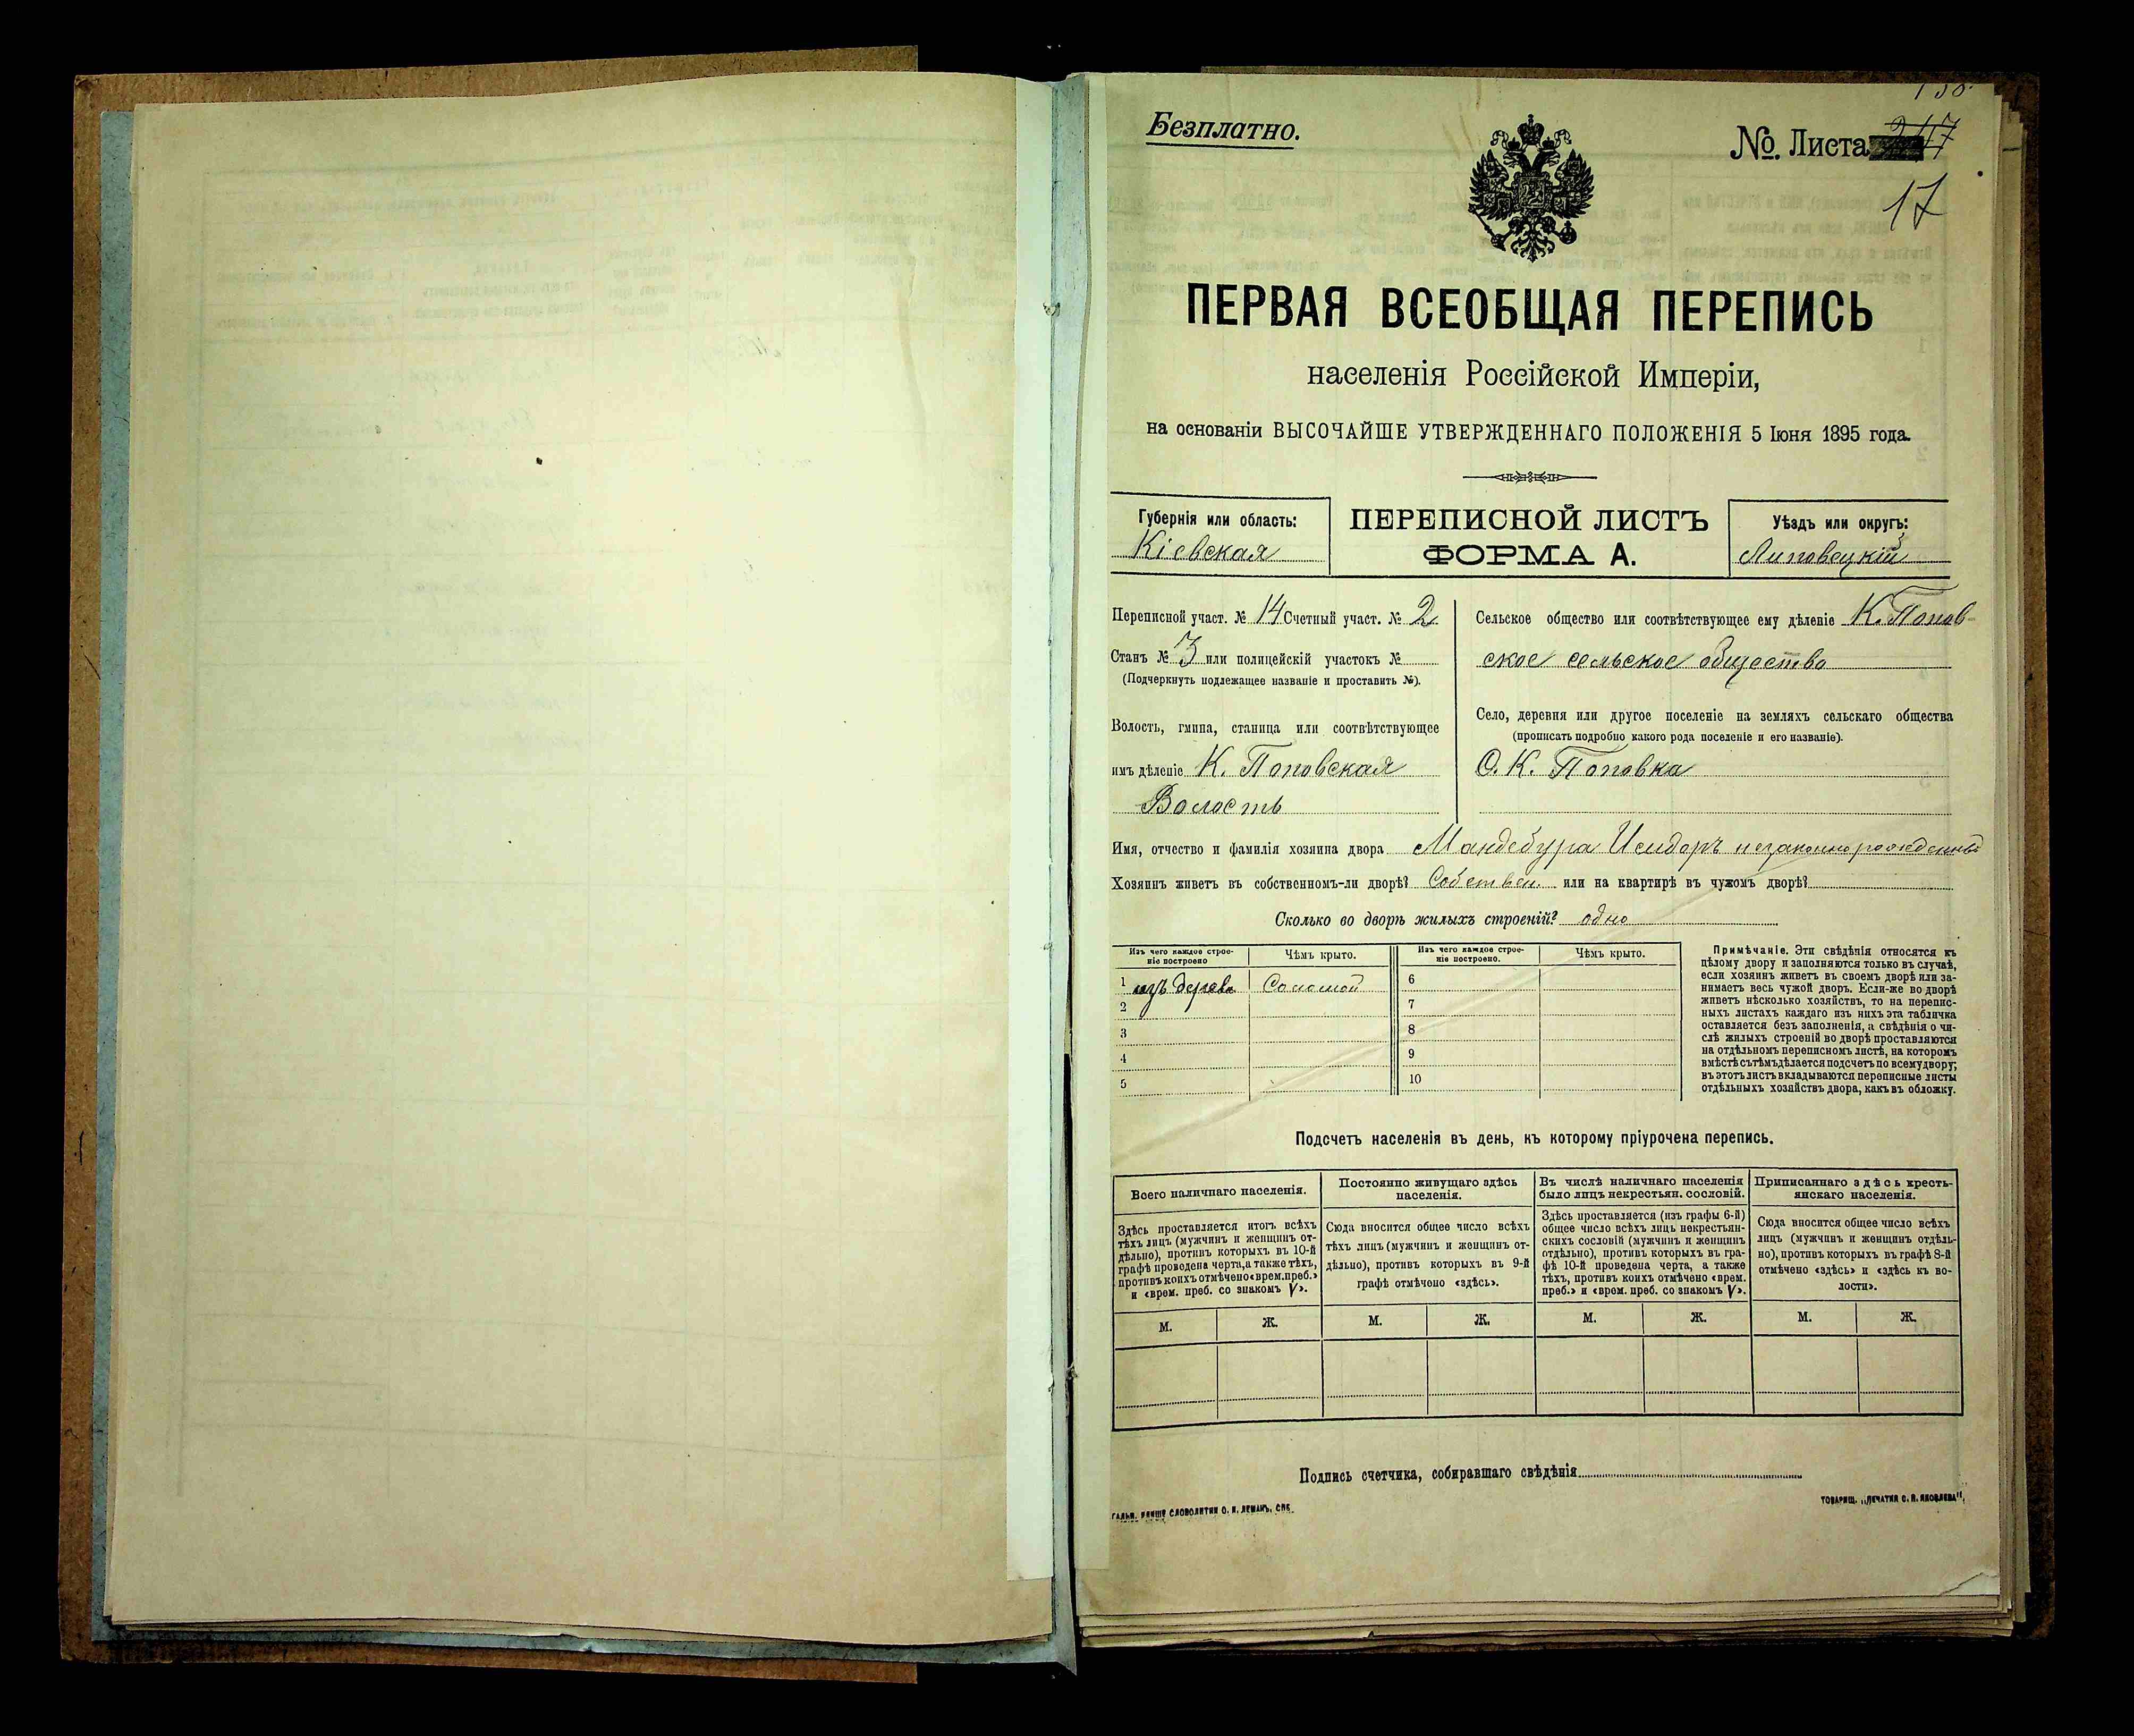 Безплатно.
№. Листа 247
17
ПЕРВАЯ ВСЕОБЩАЯ ПЕРЕПИСЬ
населенія Россійской Имперіи,
на основаніи ВЫСОЧАЙШЕ УТВЕРЖДЕННАГО ПОЛОЖЕНІЯ 5 Іюня 1895 года.
Губернія или область:
Кіевская
ПЕРЕПИСНОЙ ЛИСТЪ
ФОРМА А.
Уѣздъ или округъ:
Липовецкій
Переписной участ. № 14 Счетный участ. № 2
Станъ № 3 или полицейскій участокъ №
(Подчеркнуть подлежащее названіе и проставить №).
Волость, гмина, станица или соотвѣтствующее
имъ дѣленіе К. Поповская
Волость
Сельское общество или соотвѣтствующее ему дѣленіе К. Попов-
ское сельское общество
Село, деревня или другое поселеніе на земляхъ сельскаго общества
(прописать подробно какого рода поселеніе и его названіе).
С. К. Поповка
Имя, отчество и фамилія хозяина двора Мандебура Исидоръ незаконнорожденный
Хозяинъ живетъ въ собственномъ-ли дворѣ? Собствен. или на квартирѣ въ чужомъ дворѣ?
Сколько во дворѣ жилыхъ строеній? одно
Изъ чего каждое строе-
ніе построено
Чѣмъ крыто.
Изъ чего каждое строе-
ніе построено.
Чѣмъ крыто.
1 изъ дерева Соломой
2
3
4
5
6
7
8
9
10
Примѣчаніе. Эти свѣдѣнія относятся къ
цѣлому двору и заполняются только въ случаѣ,
если хозяинъ живетъ въ своемъ дворѣ или за-
нимаетъ весь чужой дворъ. Если-же во дворѣ
живетъ нѣсколько хозяйствъ, то на перепис-
ныхъ листахъ каждаго изъ нихъ эта табличка
оставляется безъ заполненія, а свѣдѣнія о чи-
слѣ жилыхъ строеній во дворѣ проставляются
на отдѣльномъ переписномъ листѣ, на которомъ
вмѣстѣ съ тѣмъ дѣлается подсчетъ по всему двору;
въ этотъ листъ вкладываются переписные листы
отдѣльныхъ хозяйствъ двора, какъ въ обложку.
Подсчетъ населенія въ день, къ которому пріурочена перепись.
Всего наличнаго населенія.
Здѣсь проставляется итогъ всѣхъ
тѣхъ лицъ (мужчинъ и женщинъ от-
дѣльно), противъ которыхъ въ 10-й
графѣ проведена черта, а также тѣхъ,
противъ коихъ отмѣчено «врем. преб.»
и «врем. преб. со знакомъ V».
Постоянно живущаго здѣсь
населенія.
Сюда вносится общее число всѣхъ
тѣхъ лицъ (мужчинъ и женщинъ от-
дѣльно), противъ которыхъ въ 9-й
графѣ отмѣчено «здѣсь».
Въ числѣ наличнаго населенія
было лицъ некрестьян. сословій.
Здѣсь проставляется (изъ графы 6-й)
общее число всѣхъ лицъ некрестьян-
скихъ сословій (мужчинъ и женщинъ
отдѣльно), противъ которыхъ въ гра-
фѣ 10-й проведена черта, а также
тѣхъ, противъ коихъ отмѣчено «врем.
преб.» и «врем. преб. со знакомъ V».
Приписаннаго здѣсь кресть-
янскаго населенія.
Сюда вносится общее число всѣхъ
лицъ (мужчинъ и женщинъ отдѣль-
но), противъ которыхъ въ графѣ 8-й
отмѣчено «здѣсь» и «здѣсь къ во-
лости».
М. Ж. М. Ж. М. Ж. М. Ж.
Подпись счетчика, собиравшаго свѣдѣнія
СЛОВОЛИТНИ О. И. ЛЕМАНЪ, СПБ.
ТОВАРИЩ. „ПЕЧАТНЯ С. П. ЯКОВЛЕВА",